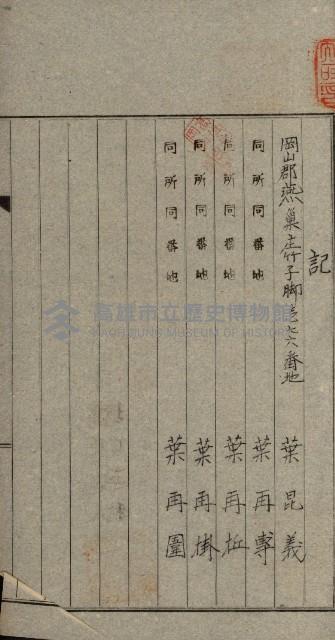 記
岡山郡燕巢庄竹子脚壱七六番地 葉昆義
同所同番地 葉再專
同所同番地 葉再坵
同所同番地 葉再掛
同所同番地 葉再圍
高雄市立歷史博物館
KAOHSIUNG MUSEUM OF HISTORY